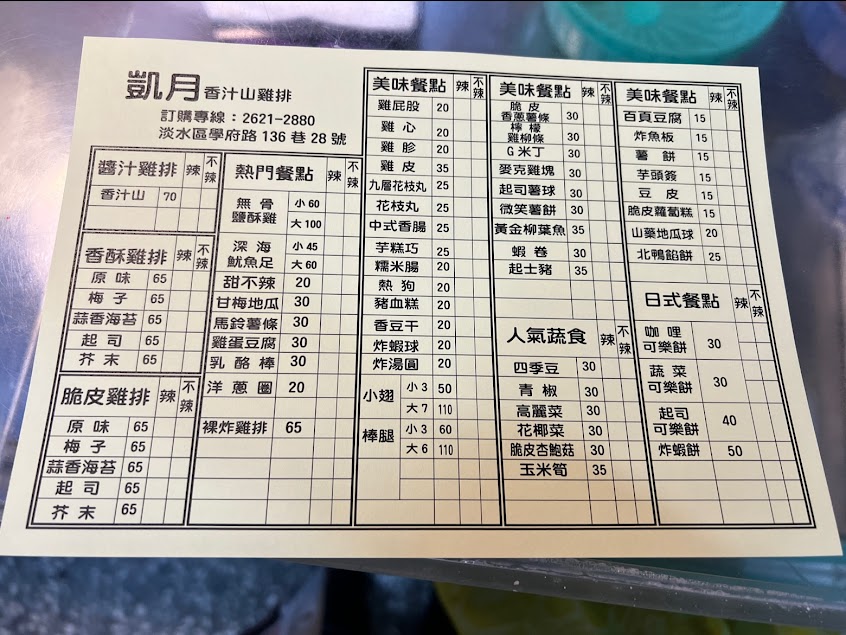 凱月香汁山雞排
訂購專線：2621-2880
淡水區學府路136巷28號
醬汁雞排 辣 不辣
香汁山 70
香酥雞排 辣 不辣
原味 65
梅子 65
蒜香海苔 65
起司 65
芥末 65
脆皮雞排 辣 不辣
原味 65
梅子 65
蒜香海苔 65
起司 65
芥末 65
熱門餐點 辣 不辣
無骨鹽酥雞 小60
大100
深海魷魚足 小45
大60
甜不辣 20
甘梅地瓜 30
馬鈴薯條 30
雞蛋豆腐 30
乳酪棒 30
洋蔥圈 20
裸炸雞排 65
美味餐點 辣 不辣
雞屁股 20
雞心 20
雞胗 20
雞皮 35
九層花枝丸 25
花枝丸 25
中式香腸 25
芋糕巧 25
糯米腸 20
熱狗 20
豬血糕 20
香豆干 20
炸蝦球 20
炸湯圓 20
小翅 小3 50
大7 110
棒腿 小3 60
大6 110
美味餐點 辣 不辣
脆皮香蔥薯條 30
檸檬雞柳條 30
G米丁 30
麥克雞塊 30
起司薯球 30
微笑薯餅 30
黃金柳葉魚 35
蝦卷 30
起士豬 35
人氣蔬食 辣 不辣
四季豆 30
青椒 30
高麗菜 30
花椰菜 30
脆皮杏鮑菇 30
玉米筍 35
美味餐點 辣 不辣
百頁豆腐 15
炸魚板 15
薯餅 15
芋頭簽 15
豆皮 15
脆皮蘿蔔糕 15
山藥地瓜球 20
北鴨餡餅 25
日式餐點 辣 不辣
咖哩可樂餅 30
蔬菜可樂餅 30
起司可樂餅 40
炸蝦餅 50